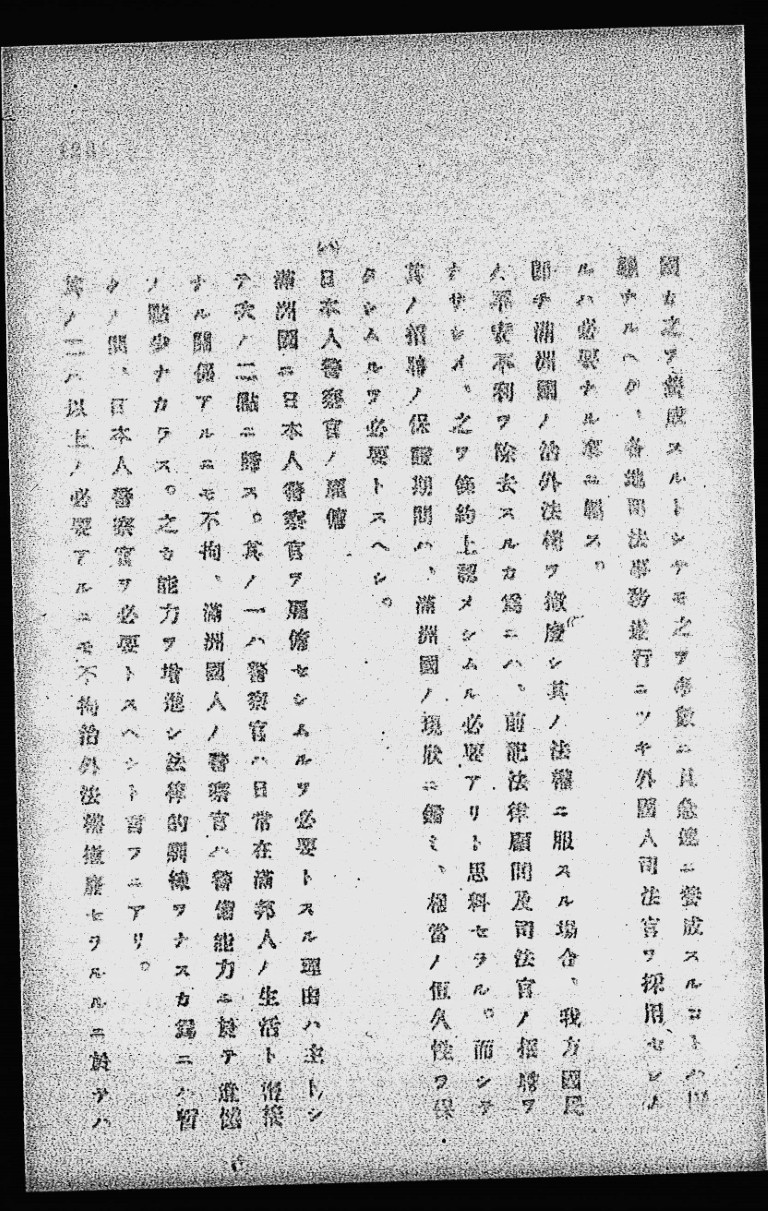 國カ之ヲ養成スルトシテモ之ヲ多數ニ且急速ニ養成スルコトハ困
難ナルヘク、各地司法事務遂行ニツキ外國人司法官ヲ採用セシム
ルハ必要ナル事ニ屬ス。
卽チ滿洲國ノ治外法權ヲ撤廢シ其ノ法權ニ服スル場合、我方國民
ノ不安不利ヲ除去スルカ爲ニハ、前記法律顧問及司法官ノ招聘ヲ
ナサシメ、之ヲ條約上認メシムル必要アリト思料セラル。而シテ
其ノ招聘ノ保證期間ハ、滿洲國ノ現狀ニ鑑ミ、相當ノ恒久性ヲ保
タシムルヲ必要トスヘシ。
(ハ)日本人警察官ノ雇傭
滿洲國ニ日本人警察官ヲ雇傭セシムルヲ必要トスル理由ハ主トシ
テ次ノ二點ニ歸ス。其ノ一ハ警察官ハ日常在滿邦人ノ生活ト密接
ナル關係アルニモ不拘、滿洲國人ノ警察官ハ警備能力ニ於テ遺憾
ノ點少ナカラス。之カ能力ヲ增進シ法律的訓練ヲナスカ爲ニハ暫
クノ間、日本人警察官ヲ必要トスヘシト言フニアリ。
其ノ二ハ以上ノ必要アルニモ不拘治外法權撤廢セラルルニ於テハ